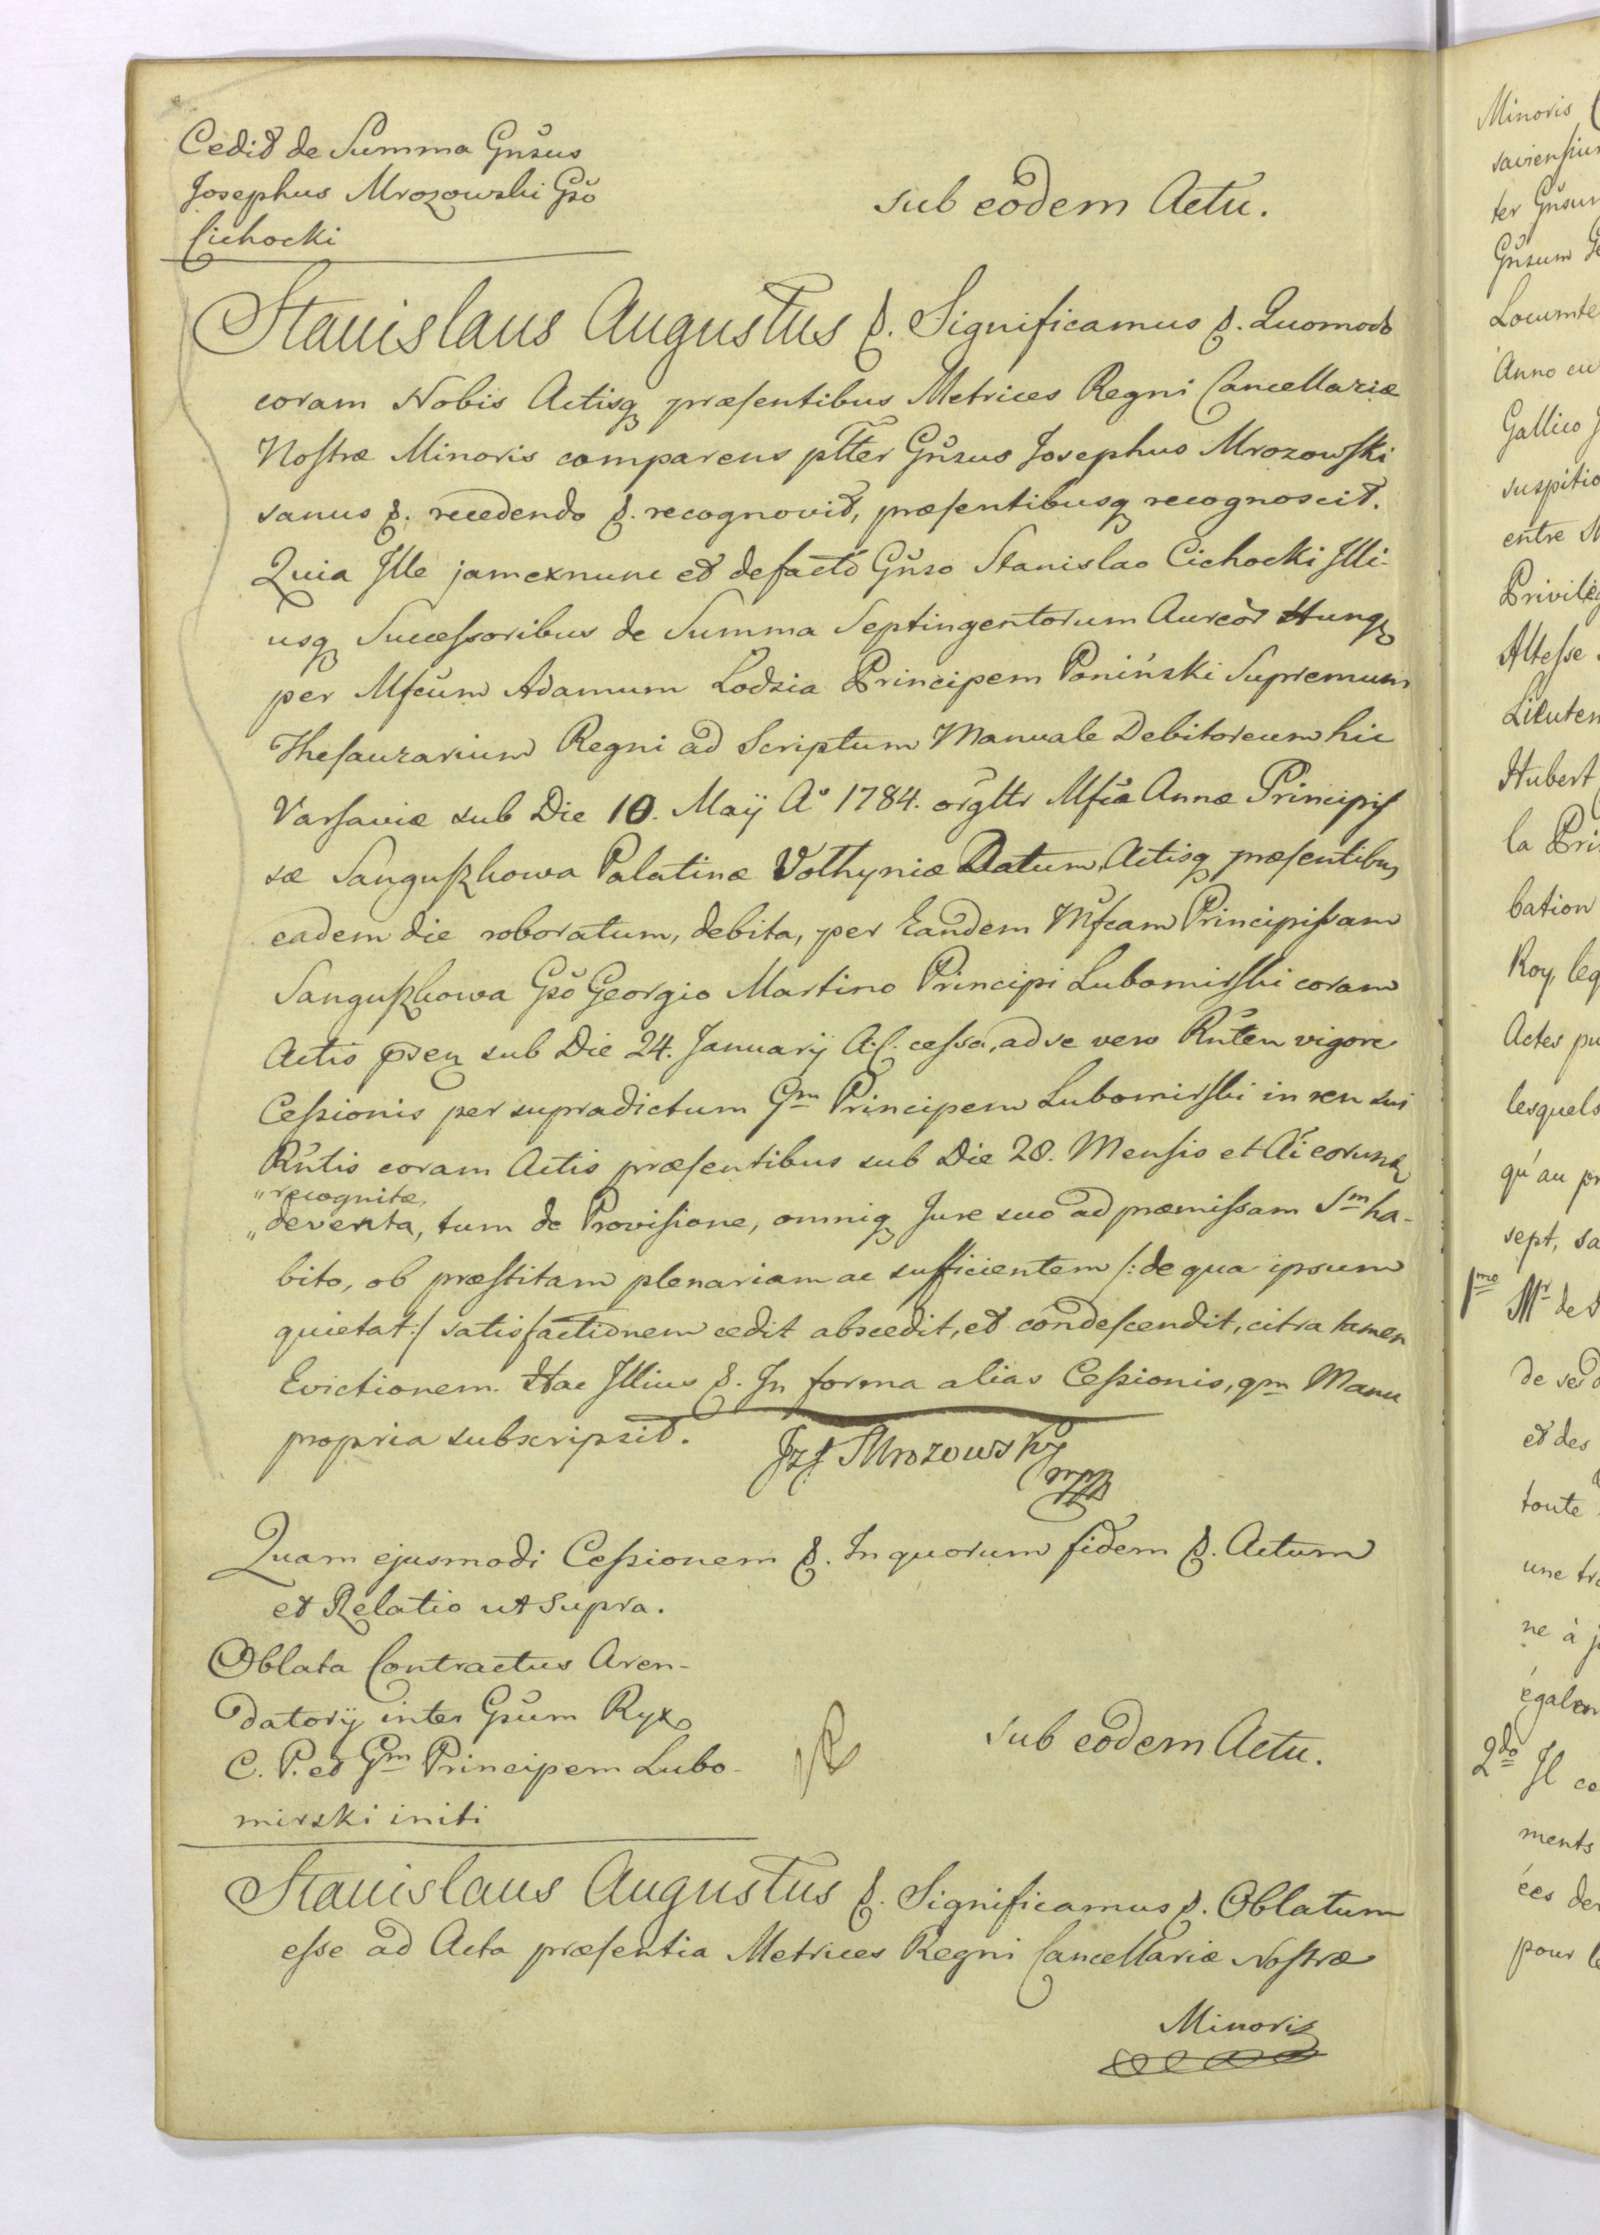 Cedit de Summa Gnsus
Josephus Mrozowski Gso
Cichocki
sub eodem Actu.
Stanislaus Augustus &. Significamus &. Quomodo
coram Nobis Actisq præsentibus Metrices Regni Cancellariæ
Nostræ Minoris comparens ptter Gnsus Josephus Mrozowski
sanus &. recedendo &. recognovit, præsentibusq recognoscit.
Quia Jlle jamexnunc et defacto Gnso Stanislao Cichocki Jlli-
usq Successoribus de Summa Septingentorum Aureor Hung
per Mfcum Adamum Lodzia Principem Poniński Supremum
Thesaurarium Regni ad Scriptum Manuale Debitoreum hic
Varsaviæ sub Die 10. Maÿ Aº 1784. orgttr Mfca Annæ Principis
sæ Sanguszkowa Palatinæ Volhyniæ Datum, Actisq præsentibus
eadem die roboratum, debita, per Eandem Mfcam Principissam
Sanguszkowa Gso Georgio Martino Principi Lubomirski coram
Actis psen sub Die 24. Januarÿ A. C. cessa, ad se vero Rnten vigore
Cessionis per supradictum Gm Principem Lubomirski in rem sui
Rntis coram Actis præsentibus sub Die 28. Mensis et Ai eorund
"recognitæ
"deventa, tum de Provisione, omniq Jure suo ad præmissam Sm ha-
bito, ob præstitam plenariam ac sufficientem /: de qua ipsum
quietat :/ satisfactionem cedit abscedit, et condescendit, citra tamen
Evictionem. Hac Jllius &. Jn forma alias Cessionis, qm Manu
propria subscripsit. Jzf Mrozowski mpp
Quam ejusmodi Cessionem &. In quorum fidem &. Actum
et Relatio ut Supra.
Oblata Contractus Aren-
datorÿ inter Gsum Ryx
C. P. et Gm Principem Lubo-
mirski initi
sub eodem Actu.
Stanislaus Augustus &. Significamus &. Oblatum
esse ad Acta præsentia Metrices Regni Cancellariæ Nostræ
Minoris
Minoris
ter Gnsum
Gnsum
Anno
Gallico
entre
Altesse
Hubert
la
bation
Roy,
Actes
lesquels
qu'au
sept,
1mo Mr de
de ses
et des
toute
une
ne à
2do Jl
ments
pour